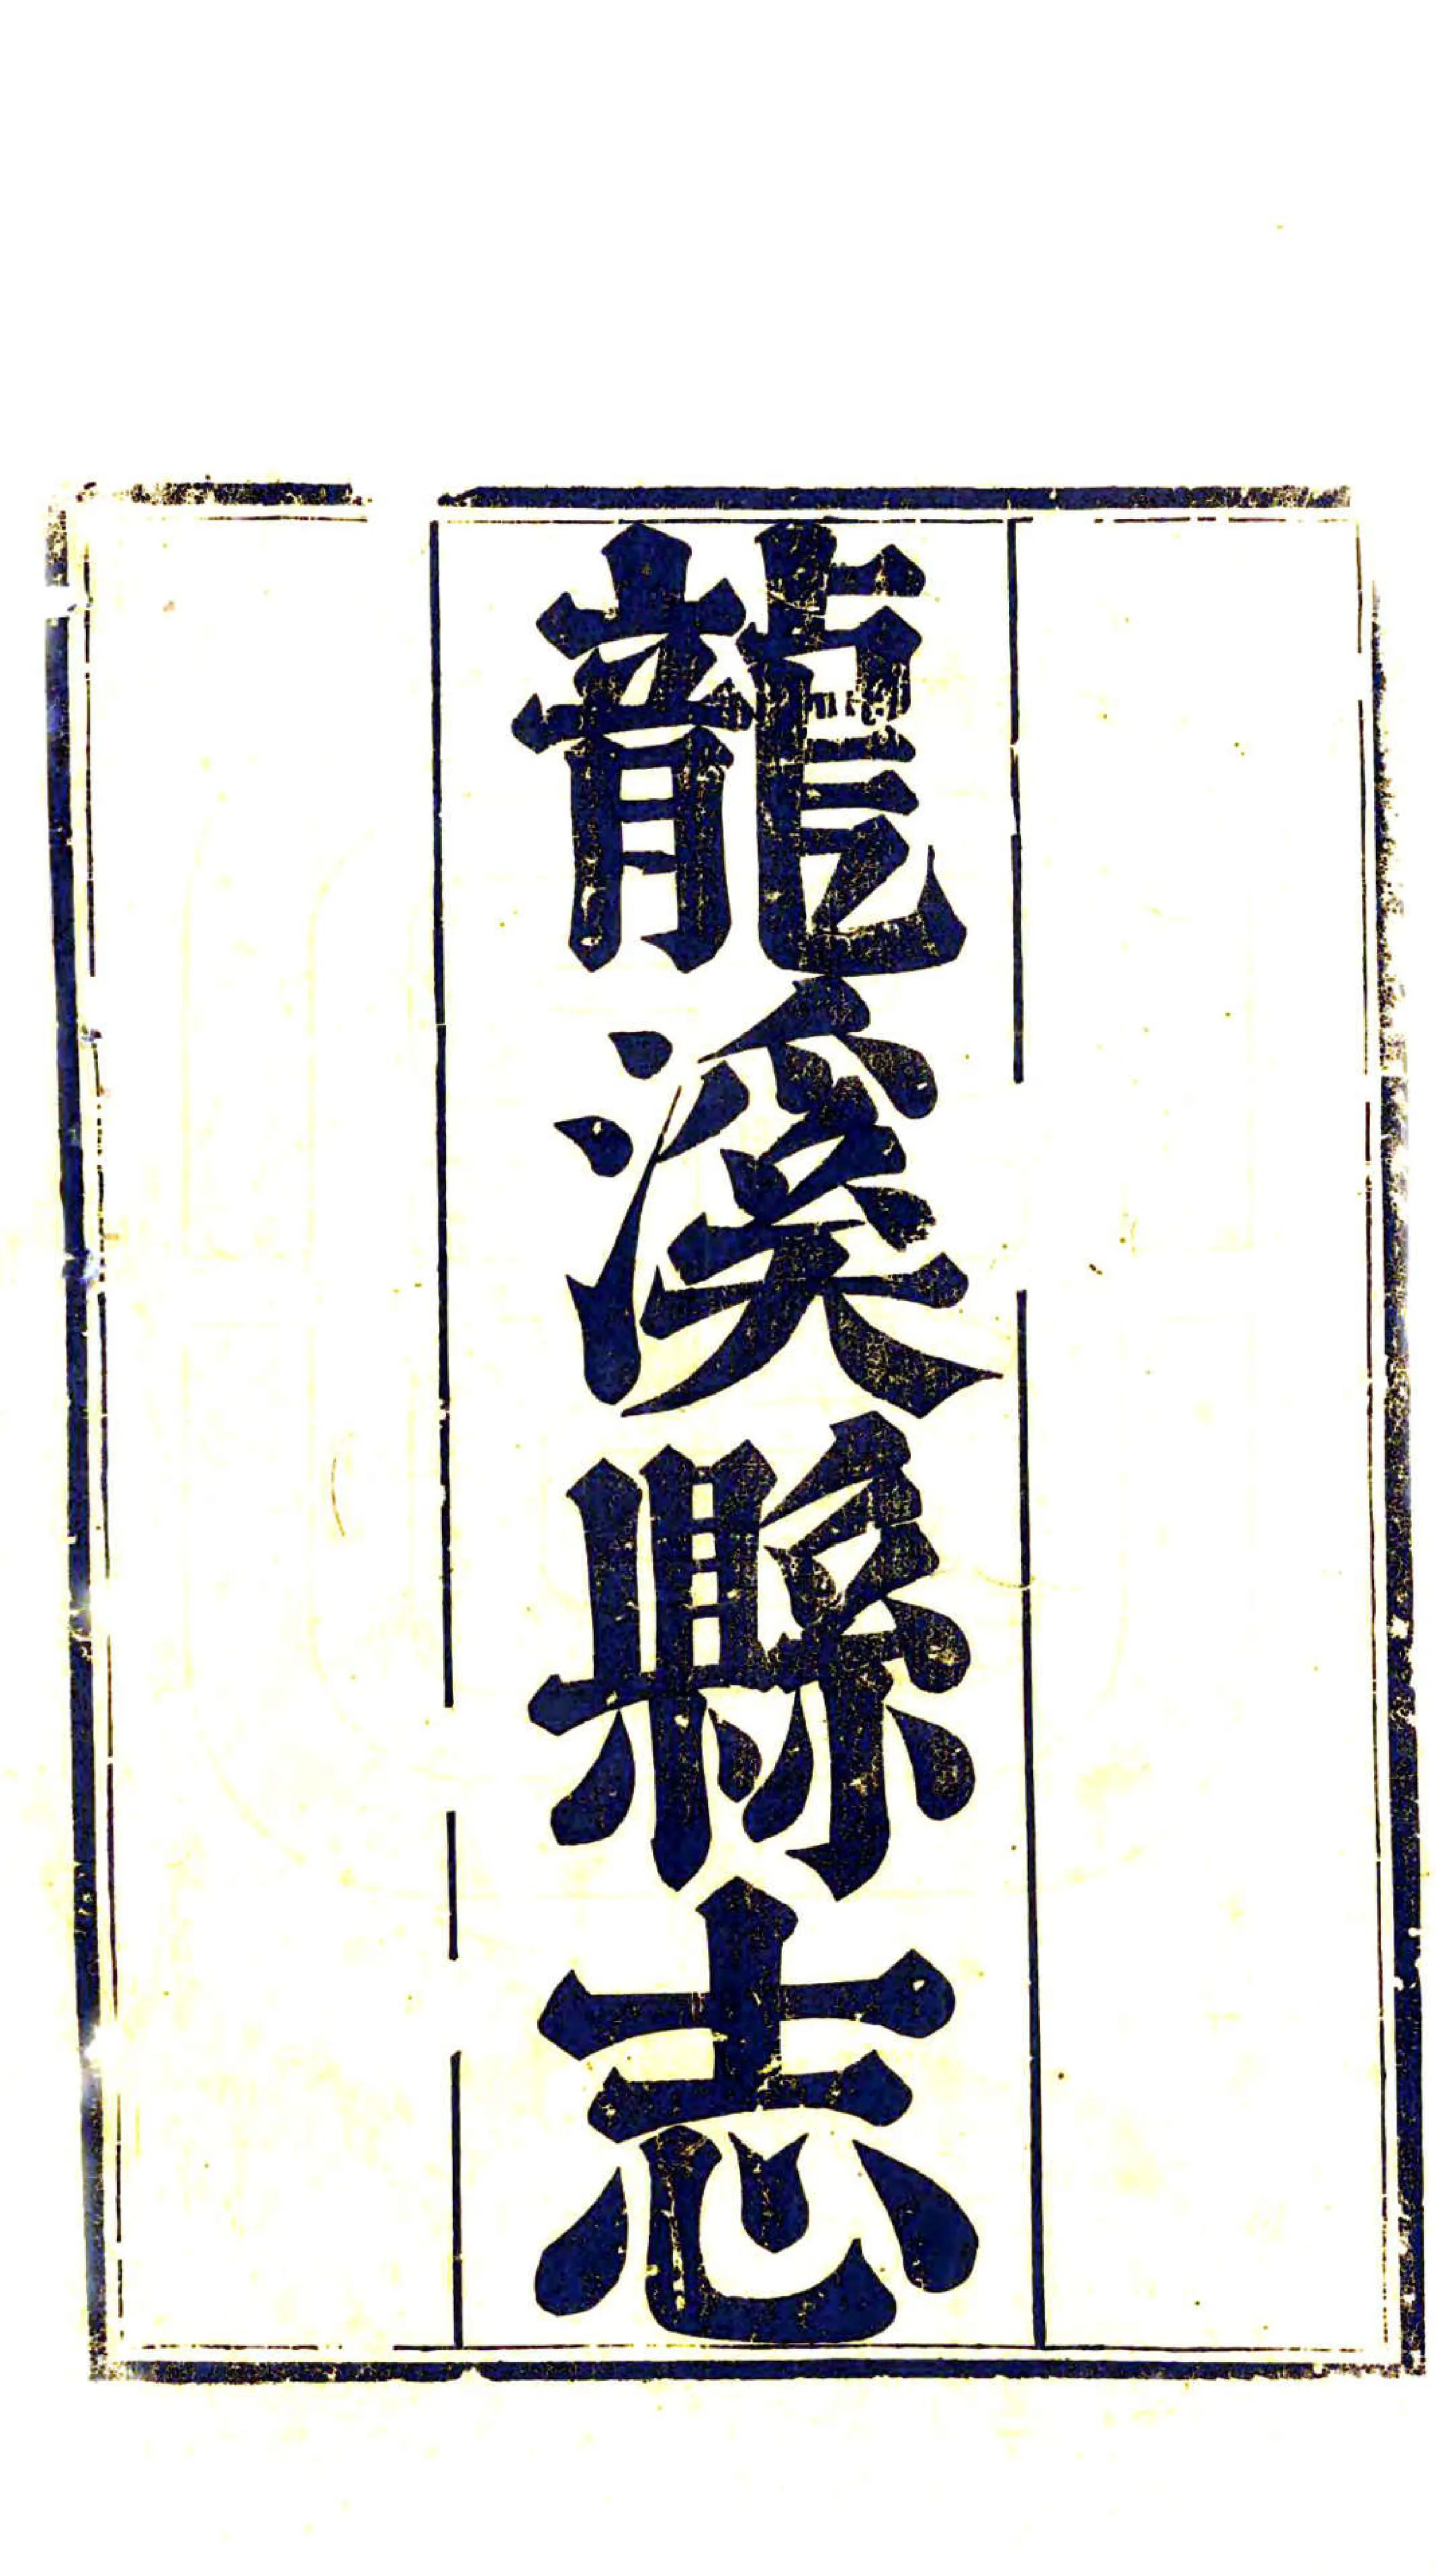 龍溪縣志